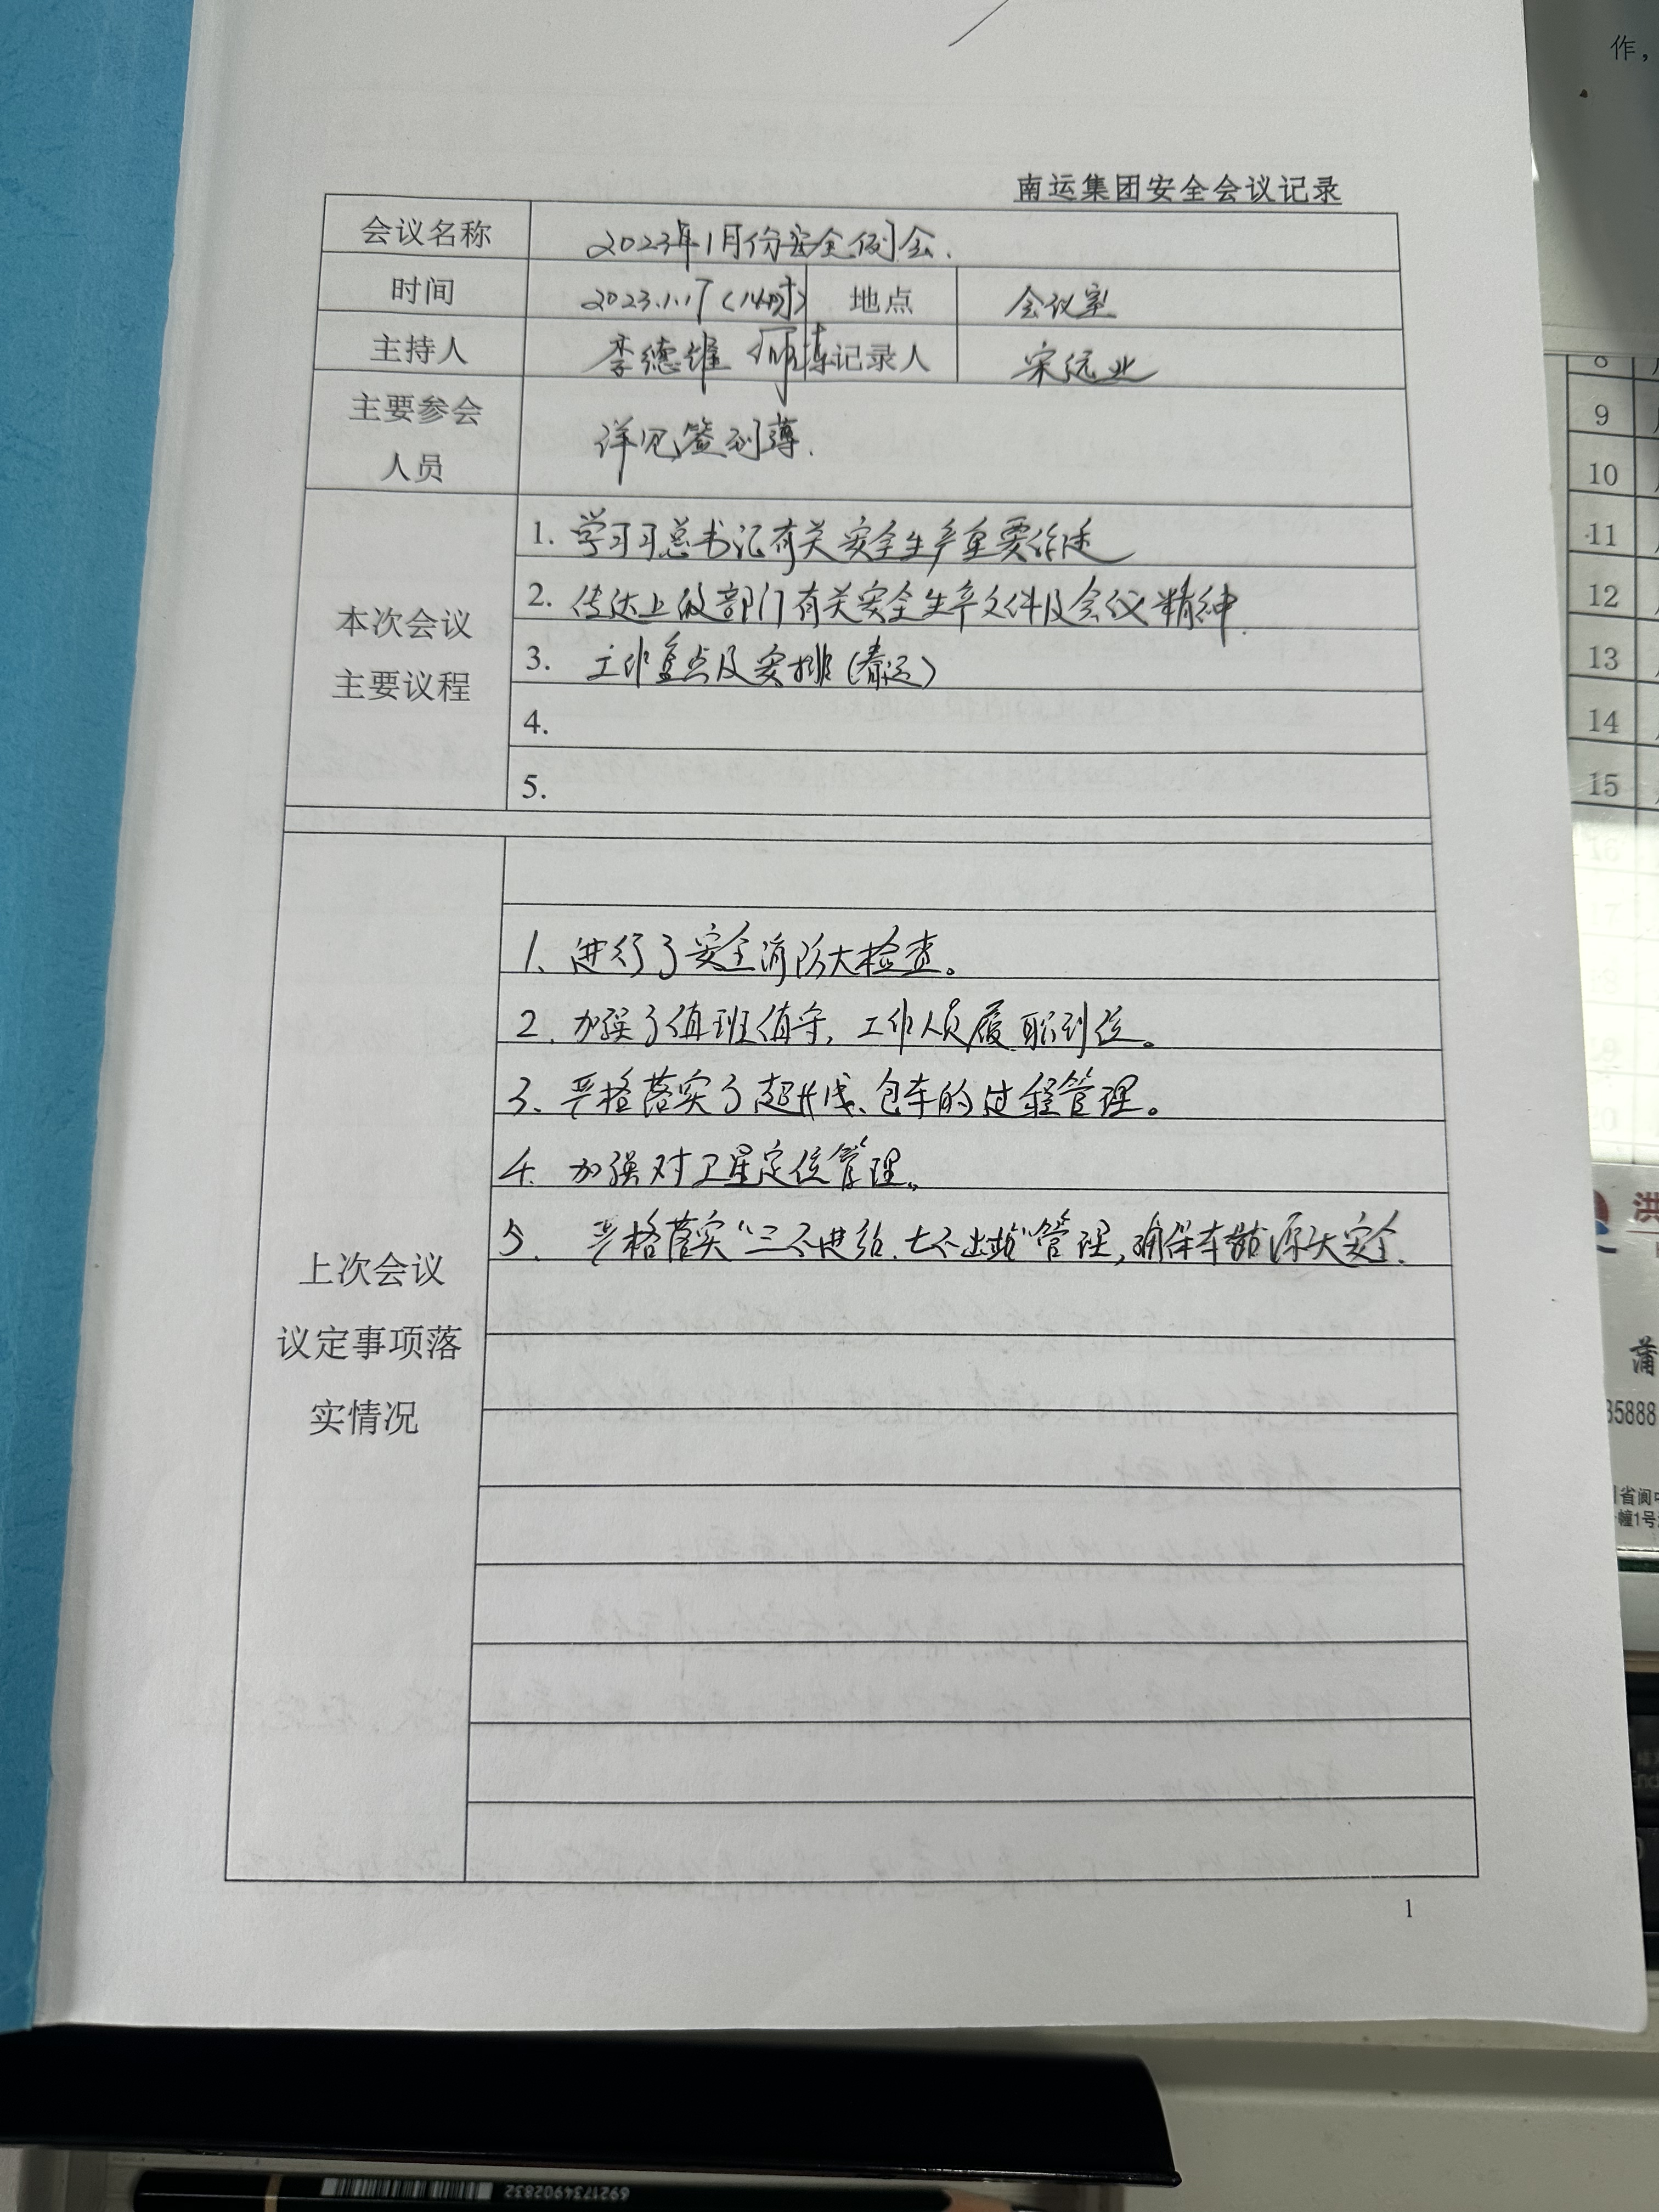 作，
南运集团安全会议记录
会议名称 2023年1月份安全例会.
时间 2023.1.17(14时) 地点 会议室
主持人 李德雄 记录人 宋远业
主要参会
人员
详见签到薄.
本次会议
主要议程
1. 学习习总书记有关安全生产重要论述
2. 传达上级部门有关安全生产文件及会议精神.
3. 工作重点及安排(春运)
4.
5.
上次会议
议定事项落
实情况
1、进行了安全消防大检查。
2. 加强了值班值守, 工作人员履职到位。
3、严格落实了超长线、包车的过程管理。
4. 加强对卫星定位管理。
5. 严格落实“三不进站.七不出站”管理,确保车站源头安全.
1
8
9
10
11
12
13
14
15
16
17
洪
蒲
85888
省阆中
幢1号
End
6921734902832